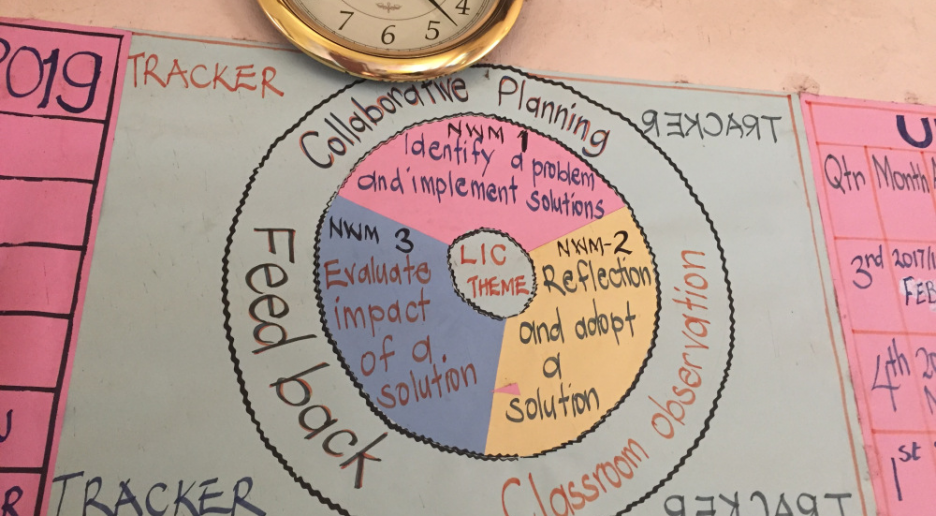 7 6 5 4
2019
TRACKER
Collaborative Planning
TRACKER
NWM 1
Identify a problem
and implement solutions
Qtr Month
NWM 3
Evaluate
impact
of a
solution
LIC
THEME
NWM-2
Reflection
and adopt
a
solution
Feed back
Classroom observation
3rd
FEB
4th
1st
TRACKER
TRACKER